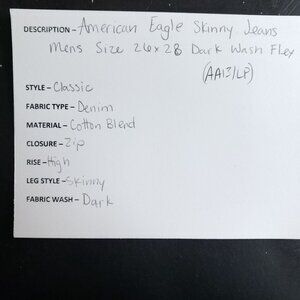 DESCRIPTION - American Eagle Skinny Jeans
Mens Size 26x28 Dark Wash Flex
(AA13/LP)
STYLE - Classic
FABRIC TYPE - Denim
MATERIAL - Cotton Blend
CLOSURE - Zip
RISE - High
LEG STYLE - Skinny
FABRIC WASH - Dark